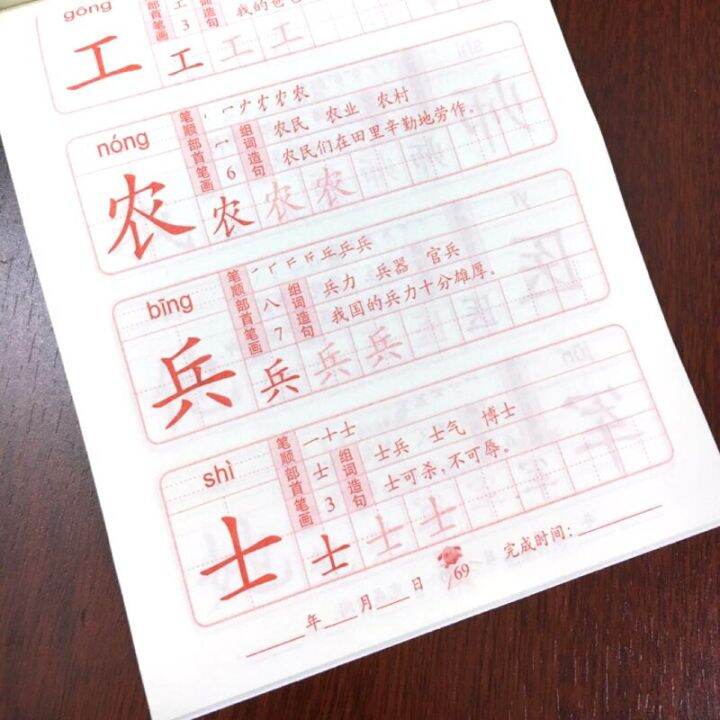 gōng
部首 工 词造
笔画 3 句 我的爸
工 工 工 工
nóng
笔顺 丶 冖 ナ 才 农 农
部首 冖 组词 农民 农业 农村
笔画 6 造句 农民们在田里辛勤地劳作。
农 农 农 农
bīng
笔顺 丿 丆 斤 丘 乒 兵
部首 八 组词 兵力 兵器 官兵
笔画 7 造句 我国的兵力十分雄厚。
兵 兵 兵 兵
shì
笔顺 一 十 士
部首 士 组词 士兵 士气 博士
笔画 3 造句 士可杀,不可辱。
士 士 士 士
____年___月___日 69 完成时间:______